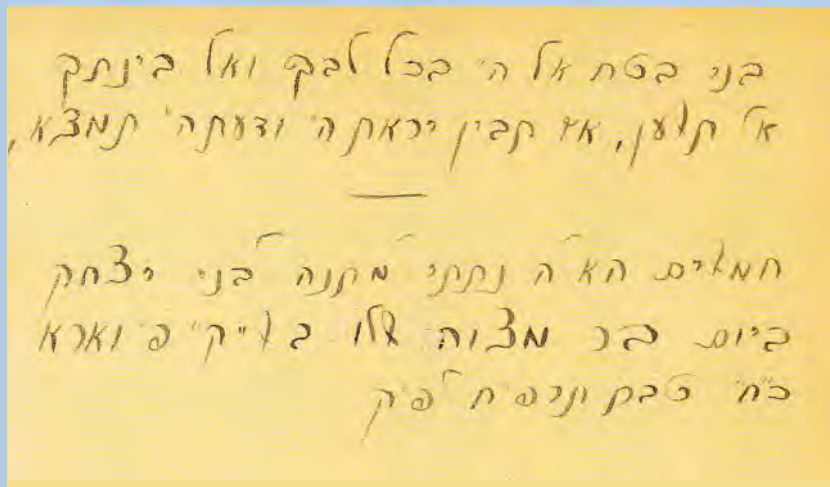 בני בטח אל ה' בכל לבך ואל בינתך
אל תשען, אז תבין יראת ה' ודעת ה' תמצא,
חמשים האלה נתתי למתנה לבני יצחק
ביום בר מצוה שלו בש"ק פ' וארא
כ"ח טבת תרפ"ח לפ"ק